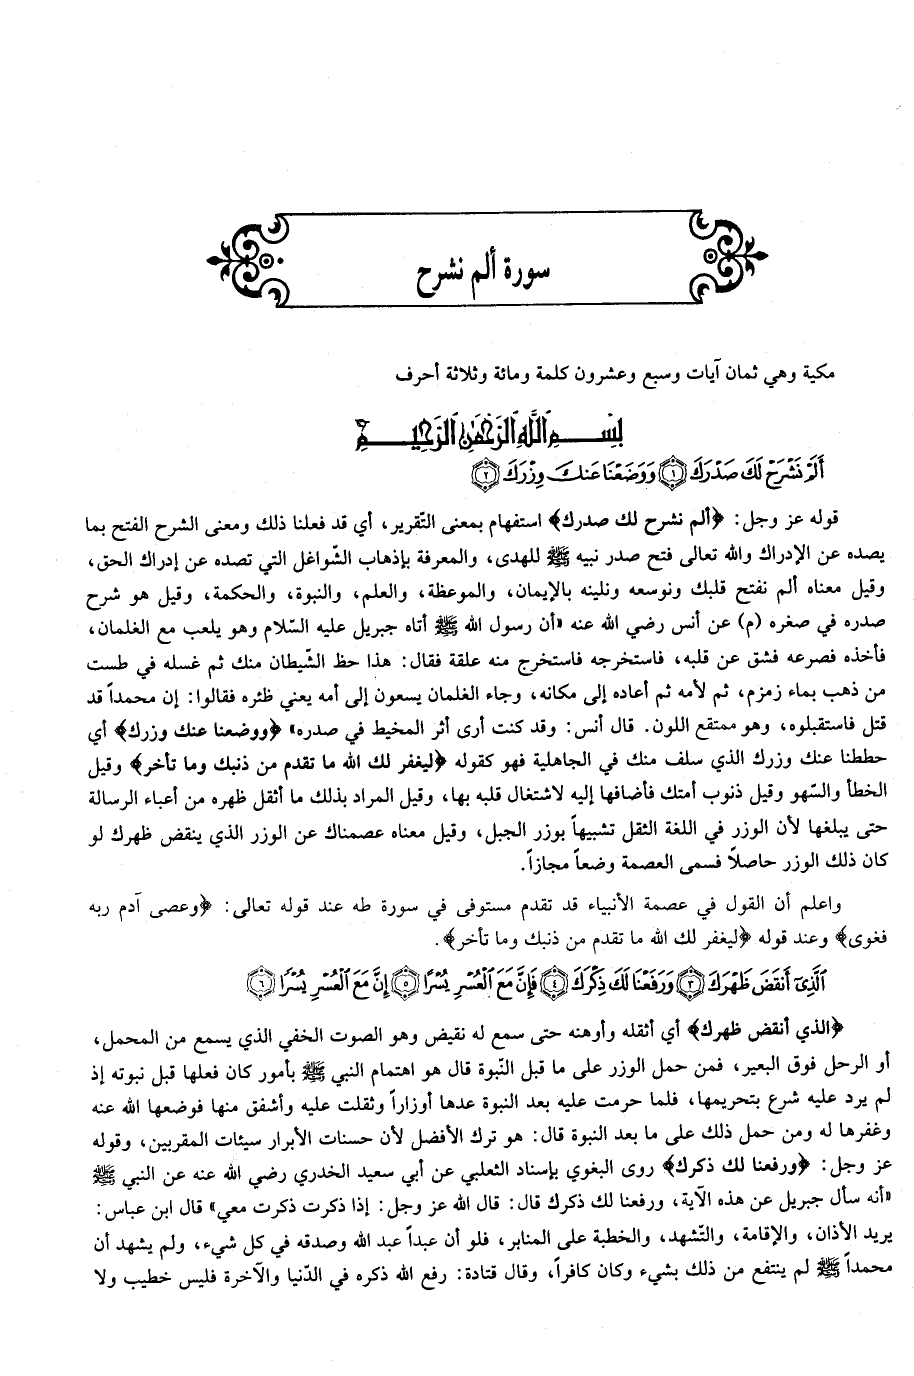 سورة ألم نشرح
مكية وهي ثمان آيات وسبع وعشرون كلمة ومائة وثلاثة أحرف
بِسْمِ اللَّهِ الرَّحْمَٰنِ الرَّحِيمِ
أَلَمْ نَشْرَحْ لَكَ صَدْرَكَ ۝١ وَوَضَعْنَا عَنكَ وِزْرَكَ ۝٢
قوله عز وجل: ﴿ألم نشرح لك صدرك﴾ استفهام بمعنى التّقرير، أي قد فعلنا ذلك ومعنى الشرح الفتح بما
يصده عن الإدراك والله تعالى فتح صدر نبيه ﷺ للهدى، والمعرفة بإذهاب الشّواغل التي تصده عن إدراك الحق،
وقيل معناه ألم نفتح قلبك ونوسعه ونلينه بالإيمان، والموعظة، والعلم، والنبوة، والحكمة، وقيل هو شرح
صدره في صغره (م) عن أنس رضي الله عنه «أن رسول الله ﷺ أتاه جبريل عليه السّلام وهو يلعب مع الغلمان،
فأخذه فصرعه فشق عن قلبه، فاستخرجه فاستخرج منه علقة فقال: هذا حظ الشّيطان منك ثم غسله في طست
من ذهب بماء زمزم، ثم لأمه ثم أعاده إلى مكانه، وجاء الغلمان يسعون إلى أمه يعني ظئره فقالوا: إن محمداً قد
قتل فاستقبلوه، وهو ممتقع اللون. قال أنس: وقد كنت أرى أثر المخيط في صدره» ﴿ووضعنا عنك وزرك﴾ أي
حططنا عنك وزرك الذي سلف منك في الجاهلية فهو كقوله ﴿ليغفر لك الله ما تقدم من ذنبك وما تأخر﴾ وقيل
الخطأ والسّهو وقيل ذنوب أمتك فأضافها إليه لاشتغال قلبه بها، وقيل المراد بذلك ما أثقل ظهره من أعباء الرسالة
حتى يبلغها لأن الوزر في اللغة الثقل تشبيهاً بوزر الجبل، وقيل معناه عصمناك عن الوزر الذي ينقض ظهرك لو
كان ذلك الوزر حاصلاً فسمى العصمة وضعاً مجازاً.
واعلم أن القول في عصمة الأنبياء قد تقدم مستوفى في سورة طه عند قوله تعالى: ﴿وعصى آدم ربه
فغوى﴾ وعند قوله ﴿ليغفر لك الله ما تقدم من ذنبك وما تأخر﴾.
الَّذِي أَنقَضَ ظَهْرَكَ ۝٣ وَرَفَعْنَا لَكَ ذِكْرَكَ ۝٤ فَإِنَّ مَعَ الْعُسْرِ يُسْرًا ۝٥ إِنَّ مَعَ الْعُسْرِ يُسْرًا ۝٦
﴿الذي أنقض ظهرك﴾ أي أثقله وأوهنه حتى سمع له نقيض وهو الصوت الخفي الذي يسمع من المحمل،
أو الرحل فوق البعير، فمن حمل الوزر على ما قبل النّبوة قال هو اهتمام النبي ﷺ بأمور كان فعلها قبل نبوته إذ
لم يرد عليه شرع بتحريمها، فلما حرمت عليه بعد النبوة عدها أوزاراً وثقلت عليه وأشفق منها فوضعها الله عنه
وغفرها له ومن حمل ذلك على ما بعد النبوة قال: هو ترك الأفضل لأن حسنات الأبرار سيئات المقربين، وقوله
عز وجل: ﴿ورفعنا لك ذكرك﴾ روى البغوي بإسناد الثعلبي عن أبي سعيد الخدري رضي الله عنه عن النبي ﷺ
«أنه سأل جبريل عن هذه الآية، ورفعنا لك ذكرك قال: قال الله عز وجل: إذا ذكرت ذكرت معي» قال ابن عباس:
يريد الأذان، والإقامة، والتّشهد، والخطبة على المنابر، فلو أن عبداً عبد الله وصدقه في كل شيء، ولم يشهد أن
محمداً ﷺ لم ينتفع من ذلك بشيء وكان كافراً، وقال قتادة: رفع الله ذكره في الدّنيا والآخرة فليس خطيب ولا